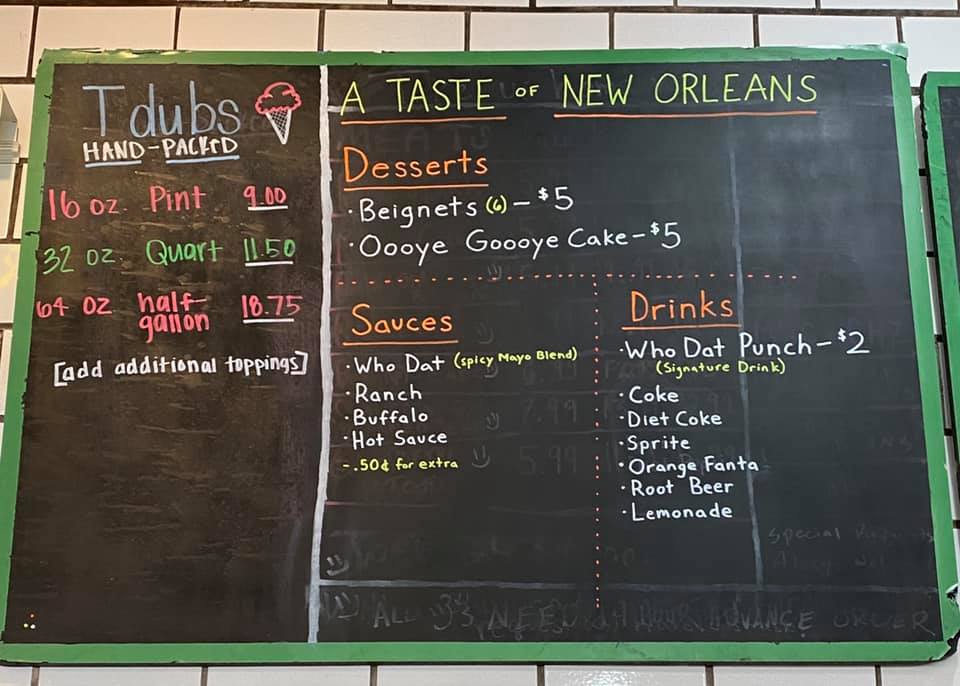 Tdubs
HAND-PACKED
16 oz. Pint 9.00
32 oz. Quart 11.50
64 oz half gallon 18.75
[add additional toppings]
A TASTE OF NEW ORLEANS
Desserts
·Beignets (6) - $5
·Oooye Goooye Cake - $5
Sauces
·Who Dat (spicy Mayo Blend)
·Ranch
·Buffalo
·Hot Sauce
-.50¢ for extra
Drinks
·Who Dat Punch - $2
(Signature Drink)
·Coke
·Diet Coke
·Sprite
·Orange Fanta
·Root Beer
·Lemonade
7.99
5.99
Special
ALL 3'S NEED ADVANCE ORDER